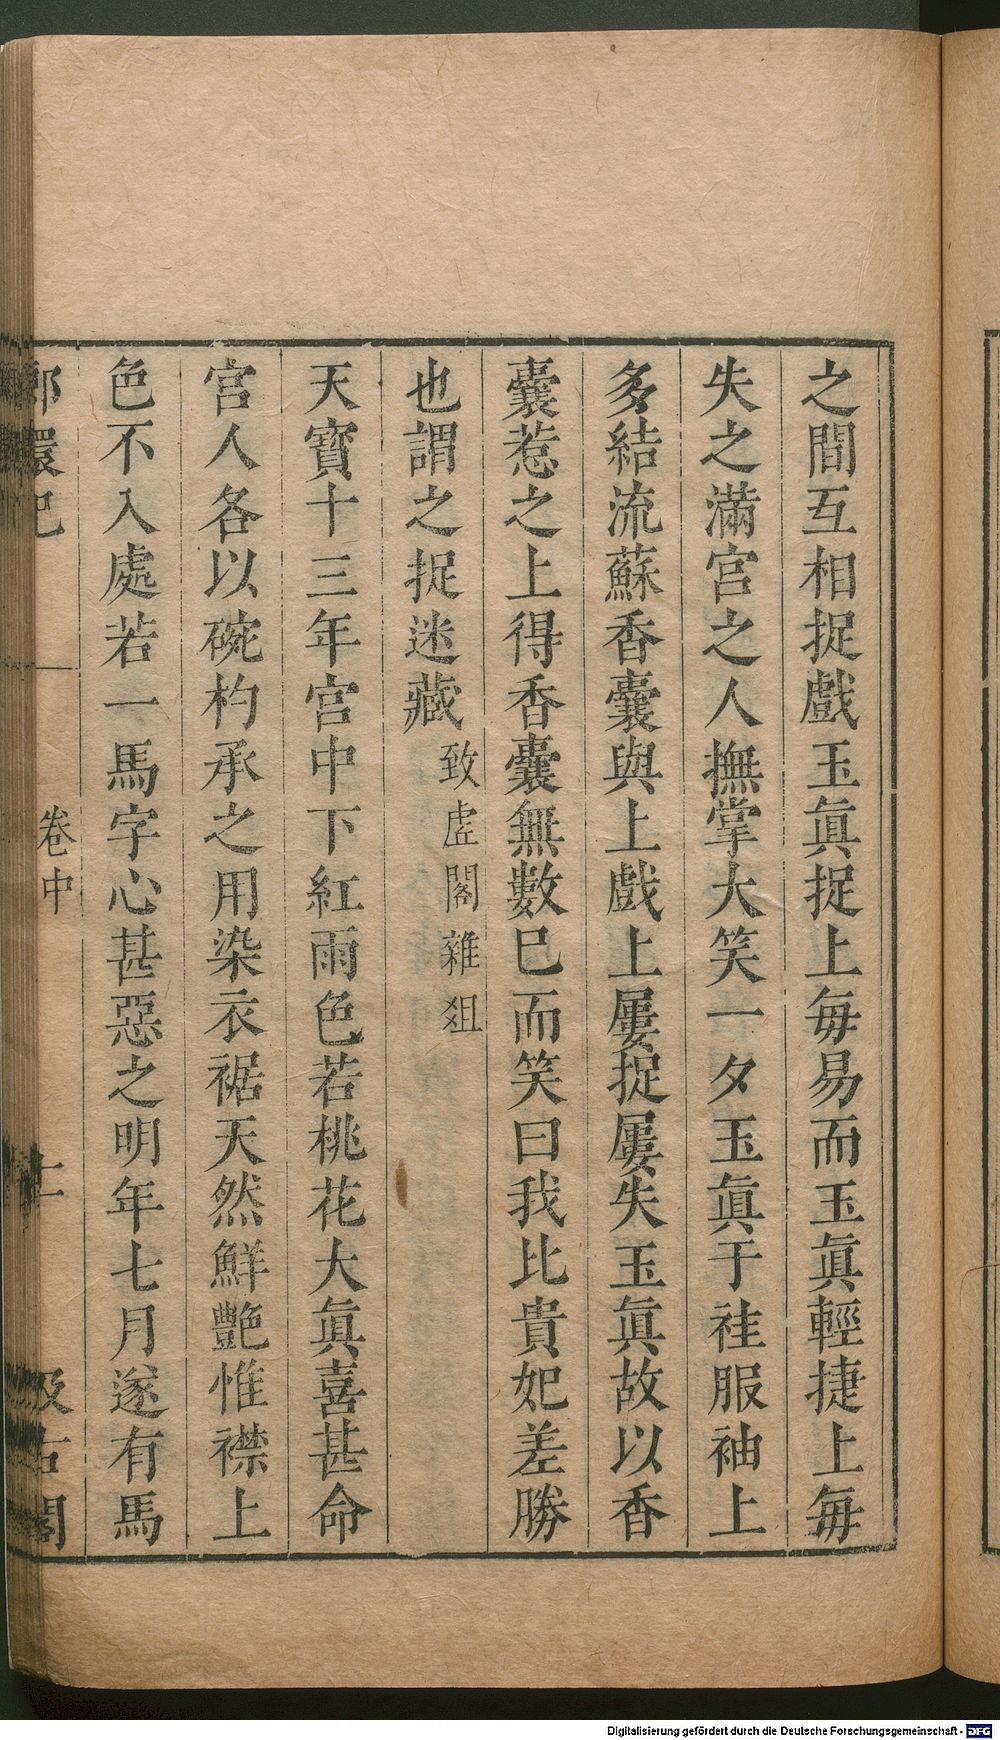 之間互相捉戲玉眞捉上毎易而玉眞輕捷上毎
失之滿宮之人撫掌大笑一夕玉眞于袿服袖上
多結流蘇香囊與上戲上屢捉屢失玉眞故以香
囊惹之上得香囊無數巳而笑曰我比貴妃差勝
也謂之捉迷藏致虗閣雜俎
天寶十三年宮中下紅雨色若桃花大眞喜甚命
宮人各以碗杓承之用染衣裾天然鮮艷惟襟上
色不入處若一馬字心甚惡之明年七月遂有馬
卷中
汲古閣
Digitalisierung gefördert durch die Deutsche Forschungsgemeinschaft - DFG